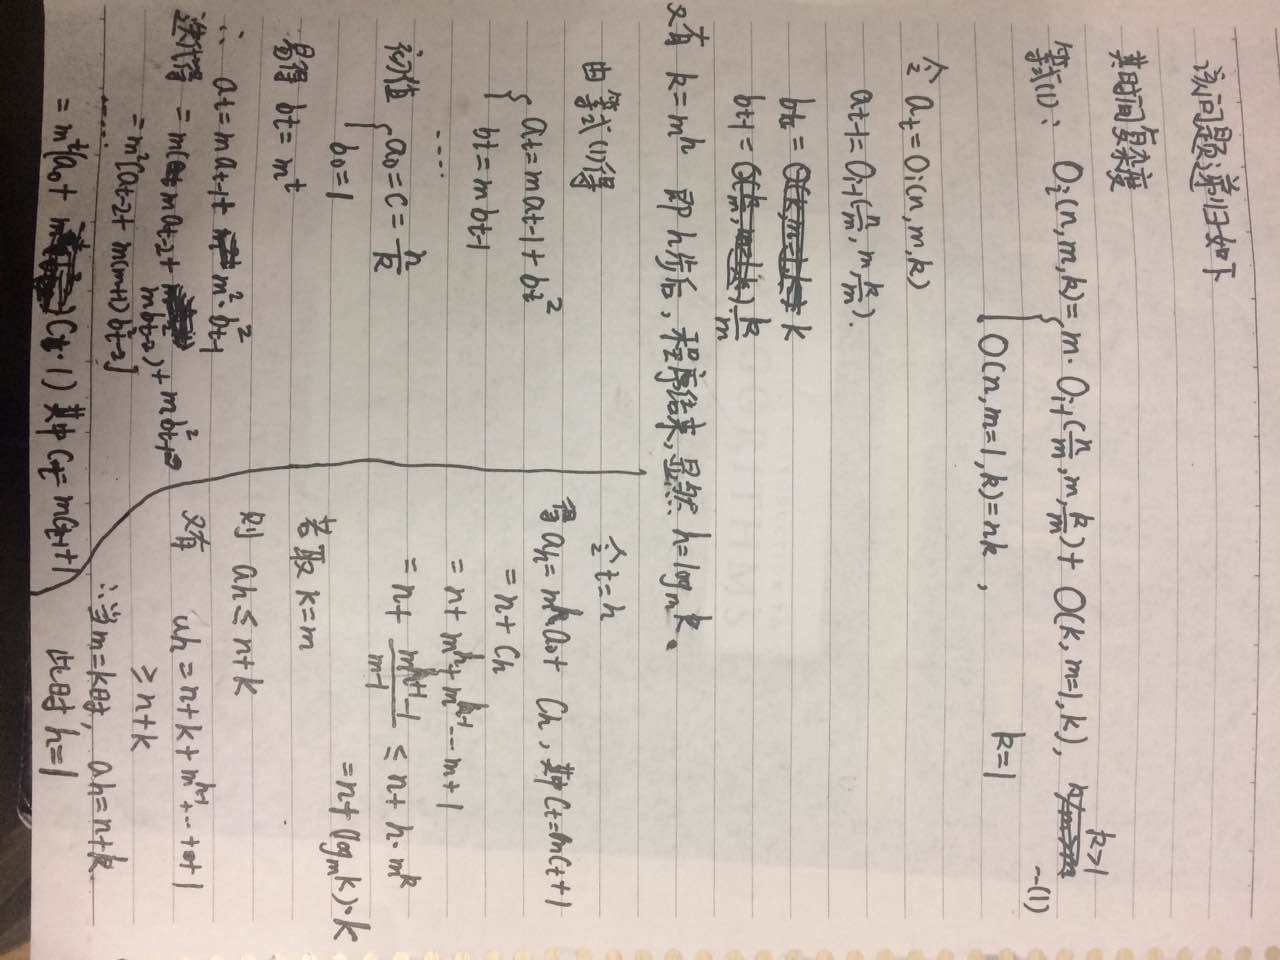 该问题递归如下
其时间复杂度
等式(1): Oᵢ(n,m,k)= m· Oᵢ₋₁(n/m, m, k/m)+ O(k, m=1, k), k>1
--(1)
O(n,m=1,k)=nk , k=1
令 aₜ=Oᵢ(n,m,k)
aₜ₋₁=Oᵢ₋₁(n/m, m, k/m).
bₜ = k
bₜ₋₁ = k/m
又有 k=mʰ 即h步后,程序结束,显然 h=logₘk。
由等式(1)得
aₜ=maₜ₋₁+bₜ²
bₜ=mbₜ₋₁
....
初值 a₀=c=n/k
b₀=1
易得 bₜ=mᵗ
∴ aₜ=maₜ₋₁+ m²·bₜ₋₁²
迭代得 = m( maₜ₋₂+ mbₜ₋₂²)+mbₜ₋₁²
=m²[aₜ₋₂+ m(m+1)bₜ₋₂²]
......
= mᵗ(a₀+ Cₜ·1) 其中Cₜ=mCₜ₋₁+1
令t=h
得aₕ=mʰa₀+ Cₕ,其中Cₜ=mCₜ+1
=n+Cₕ
=n+mʰ+mʰ⁻¹--m+1
=n+ (mʰ⁺¹-1)/(m-1) ≤ n+h·mᵏ
=n+(logₘk)·k
若取k=m
则 aₕ≤n+k
又有 aₕ=n+k+mʰ⁻¹+…++1
≥n+k
∴当m=k时, aₕ=n+k.
此时h=1
ALGORITHMS